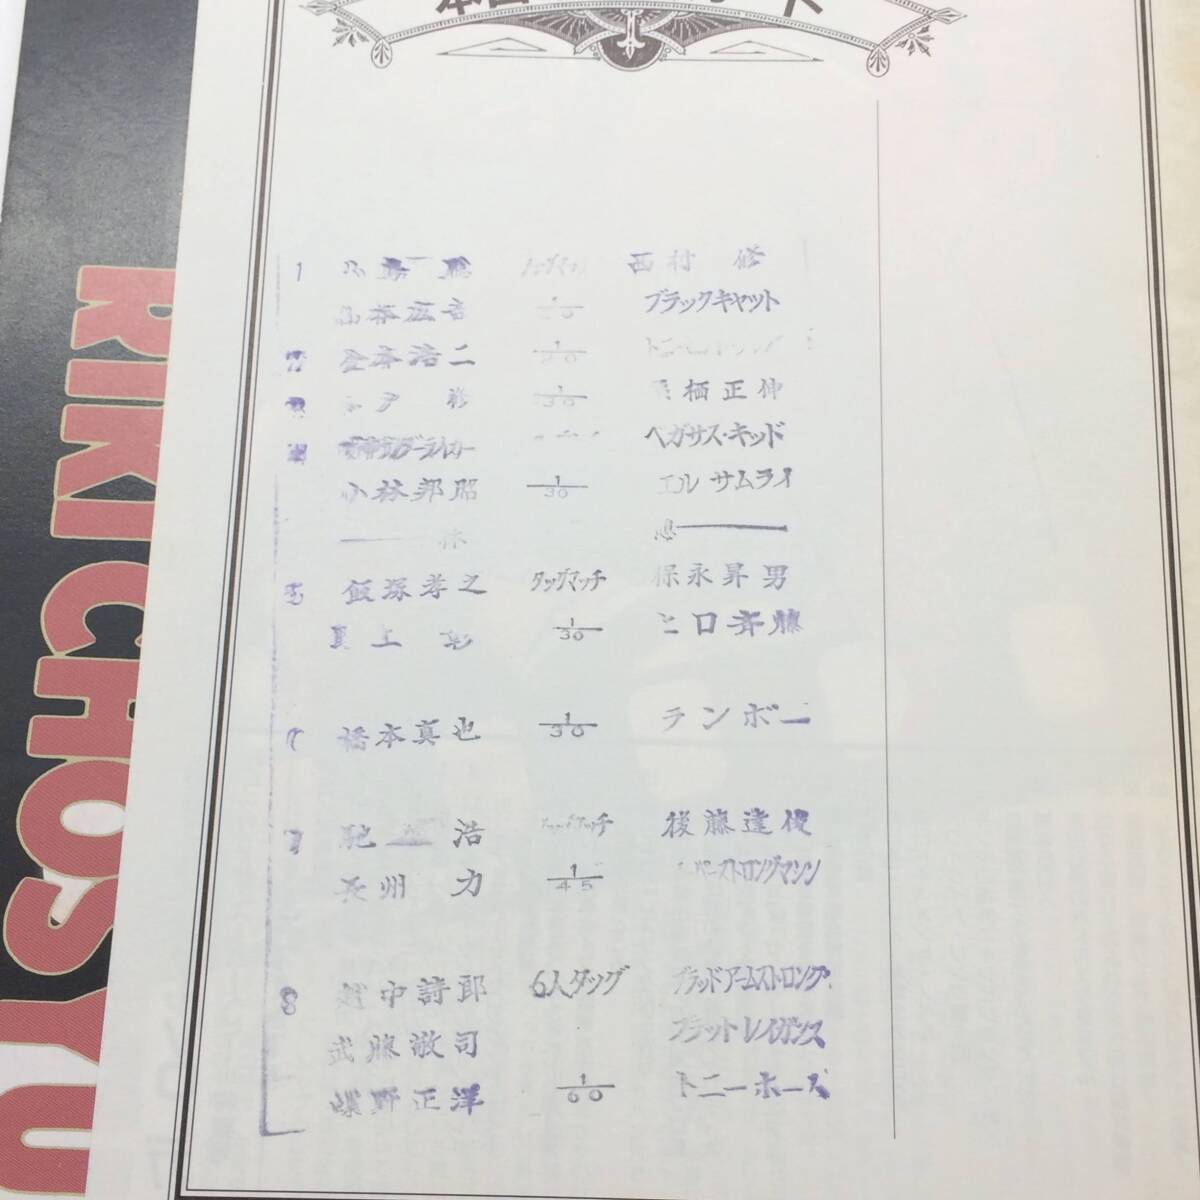 RIKI CHOSYU
1 西村 修
ブラックキャット
金本浩二 1/20
1/30 栗栖正伸
ペガサス・キッド
小林邦昭 1/30 エル サムライ
休 憩
5 飯塚孝之 タッグマッチ 保永昇男
1/30 ヒロ斉藤
橋本真也 1/30 テンボー
7 馳 浩 タッグマッチ 後藤達俊
長州 力 1/45 スーパーストロングマシン
8 越中詩郎 6人タッグ ブラッドアームストロング
武藤敬司 ブラッドレイガンス
蝶野正洋 1/60 トニーホーズ